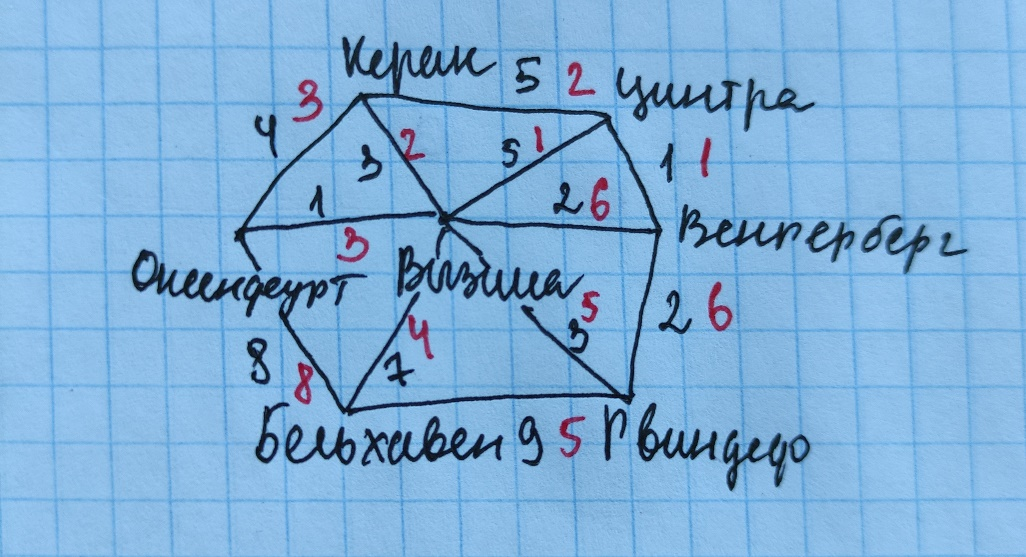 Керак 5 2 Цинтра
4 3
3 2 5 1 1 1
1 3 2 6 Венгерберг
Оксенфурт Вызима
8 8 7 4 3 5 2 6
Бельхавен 9 5 Гвиндедо